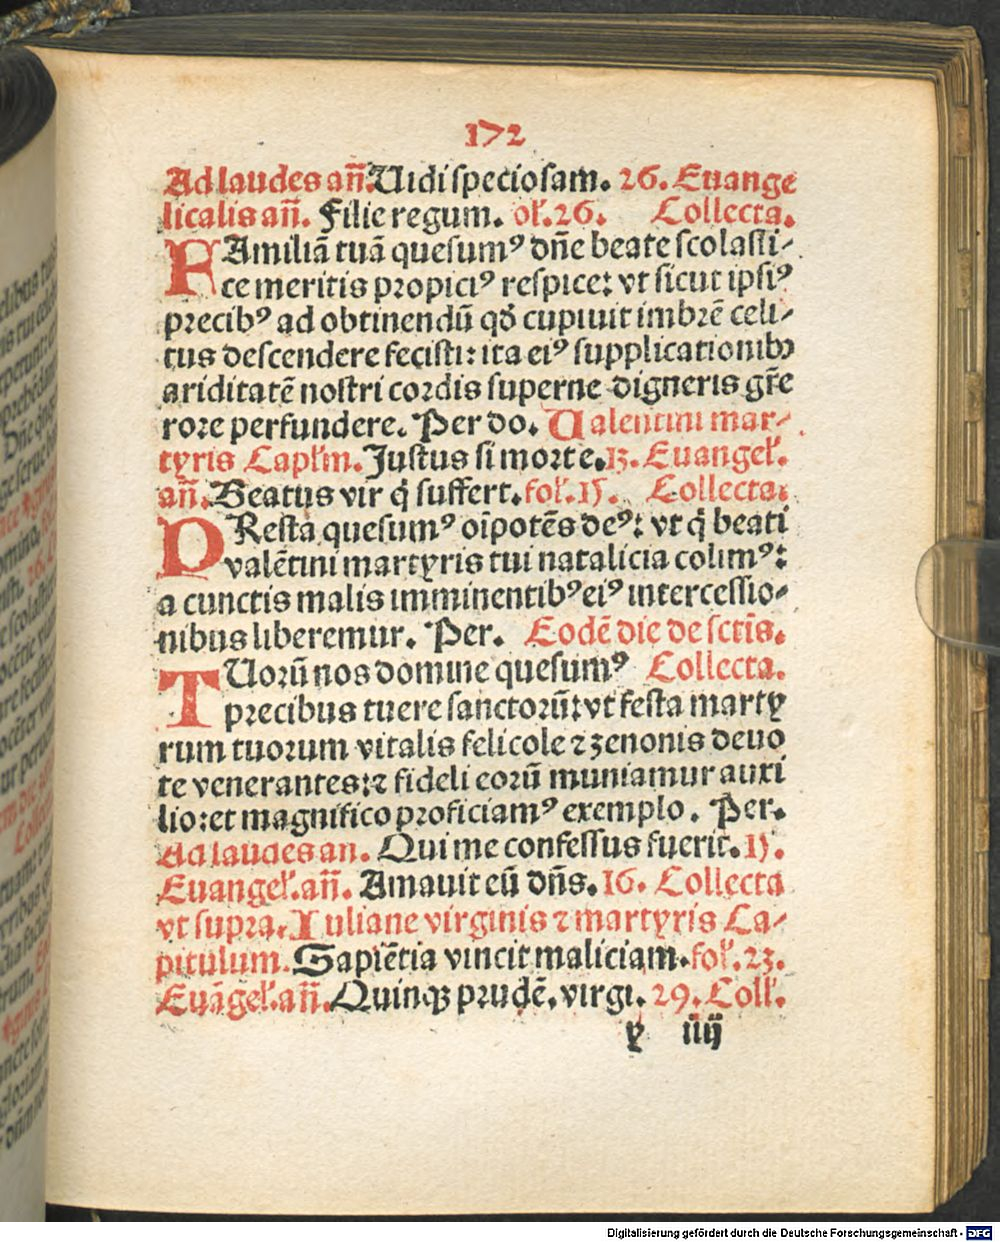 172
Ad laudes añ. Uidi speciosam. 26. Euange
licalis añ. Filie regum. ol̃. 26. Collecta.
FAmiliã tuã quesumꝰ dñe beate scolasti⸗
ce meritis propiciꝰ respice: vt sicut ipsiꝰ
precibꝰ ad obtinendũ qđ cupiuit imbrẽ celi⸗
tus descendere fecisti: ita eiꝰ supplicationibꝰ
ariditatẽ nostri cordis superne digneris gr̃e
rore perfundere. Per do. Ualentini mar⸗
tyris Capl'm. Justus si morte. 13. Euangel'.
añ. Beatus vir q̇ suffert. fol'. 15. Collecta:
PResta quesumꝰ oĩpotẽs deꝰ: vt q̇ beati
valẽtini martyris tui natalicia colimꝰ:
a cunctis malis imminentibꝰ eiꝰ intercessio⸗
nibus liberemur. Per. Eodẽ die de sctĩs.
TUorũ nos domine quesumꝰ Collecta.
precibus tuere sanctorũ: vt festa marty
rum tuorum vitalis felicole ⁊ zenonis deuo
te venerantes: ⁊ fideli eorũ muniamur auxi
lio: et magnifico proficiamꝰ exemplo. Per.
Ad laudes an. Qui me confessus fuerit. 15.
Euangel'. añ. Amauit eũ dñs. 16. Collecta
vt supra. Iuliane virginis ⁊ martyris Ca⸗
pitulum. Sapiẽtia vincit maliciam. fol'. 23.
Euãgel'. añ. Quinqꝫ prudẽ. virgi. 29. Coll'.
y iiij
Digitalisierung gefördert durch die Deutsche Forschungsgemeinschaft - DFG